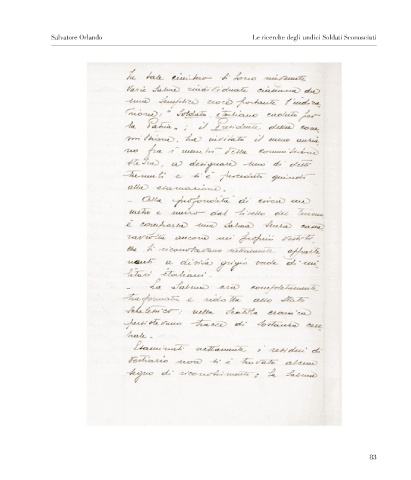 Salvatore Orlando
Le ricerche degli undici Soldati Sconosciuti
In tale cimitero si sono rinvenute
varie salme individuate ciascuna da
una semplice croce portante l'indica
zione: "Soldato italiano caduto per
la Patria"; il Presidente della com
missione, ha invitato il meno anzia
no fra i membri della commissione
stessa, a designare uno di detti
tumuli e si è proceduto quindi
alla esumazione.
- Alla profondità di circa un
metro e mezzo dal livello del terreno
è comparsa una salma senza cassa
ravvolta ancora nei propri vestiti,
che si riconoscevano nettamente apparte
nenti a divisa grigio verde di mi
litari italiani.
- La salma era completamente
trasformata e ridotta allo stato
scheletrico; nella scatola cranica
persistevano tracce di sostanza cere
brale.
Esaminati nettamente i residui di
vestiario non si è trovato alcun
segno di riconoscimento; la salma
83